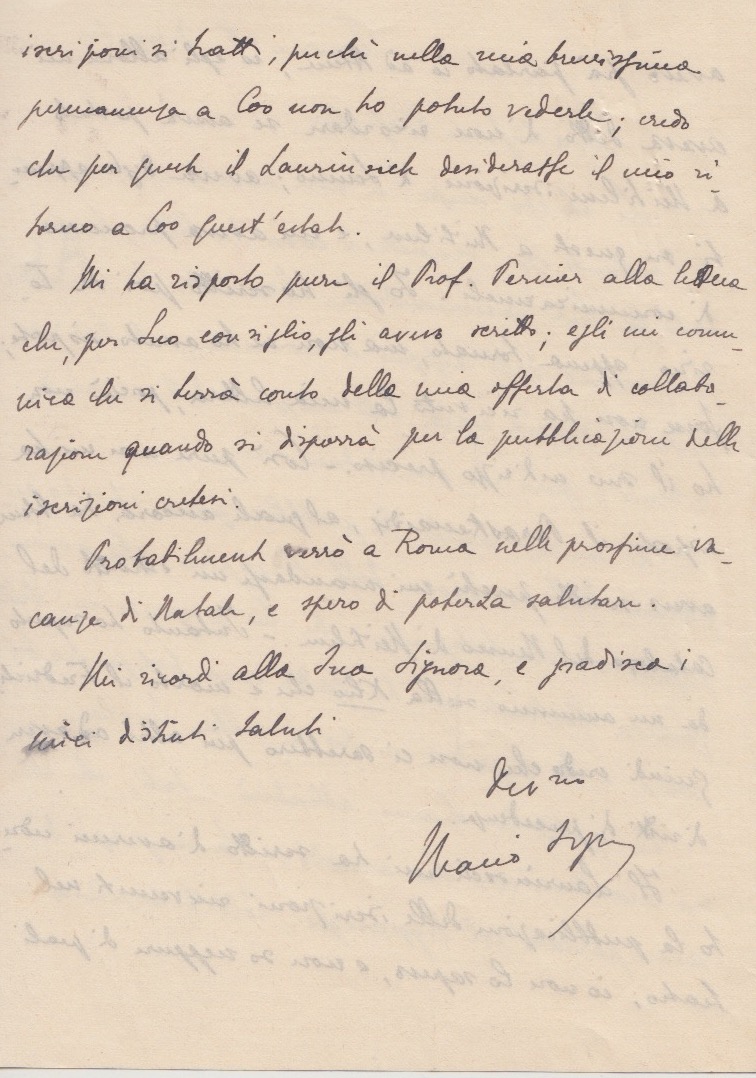 iscrizioni si tratti, perchè nella mia brevissima
permanenza a Coo non ho potuto vederle; credo
che per queste il Laurinsich desiderasse il mio ri-
torno a Coo quest'estate.
Mi ha risposto pure il Prof. Pernier alla lettera
che, per Suo consiglio, gli avevo scritto; egli mi comu-
nica che si terrà conto della mia offerta di collabo-
razione quando si disporrà per la pubblicazione delle
iscrizioni cretesi.
Probabilmente verrò a Roma nelle prossime va-
canze di Natale, e spero di poterLa salutare.
Mi ricordi alla Sua Signora, e gradisca i
miei distinti saluti
Dev mo
Mario Segre